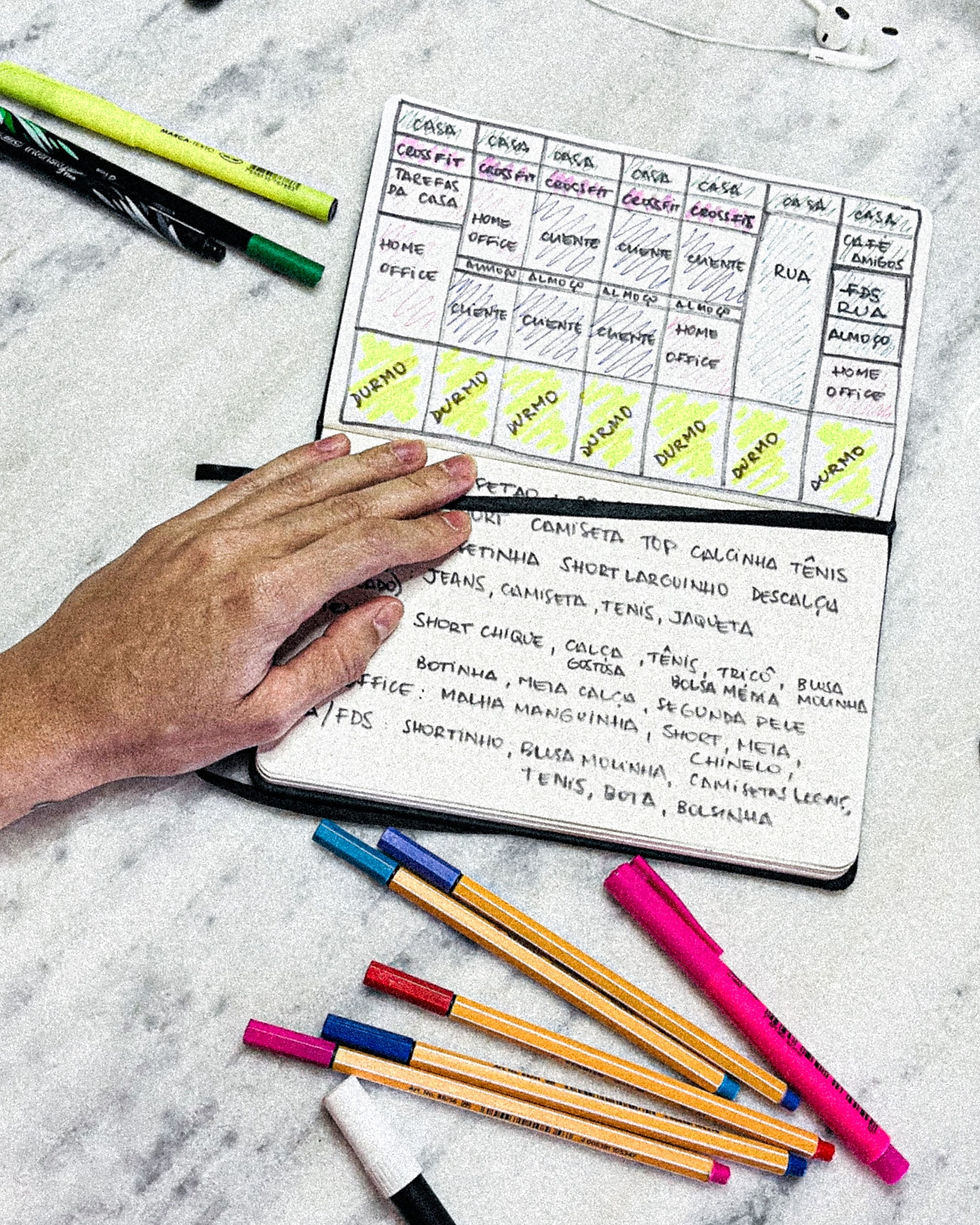 MARCA TEXTO
CASA CASA CASA CASA CASA CASA CASA
CROSSFIT CROSSFIT CROSSFIT CROSSFIT CROSSFIT
TAREFAS DA CASA
HOME OFFICE
HOME OFFICE
CLIENTE CLIENTE CLIENTE
RUA
CAFÉ AMIGOS
FDS RUA
ALMOÇO ALMOÇO ALMOÇO ALMOÇO
ALMOÇO
CLIENTE CLIENTE CLIENTE
HOME OFFICE
HOME OFFICE
DURMO DURMO DURMO DURMO DURMO DURMO DURMO
CAMISETA TOP CALCINHA TÊNIS
SHORT LARGUINHO DESCALÇA
JEANS, CAMISETA, TENIS, JAQUETA
SHORT CHIQUE, CALÇA, TÊNIS, TRICÔ, BLUSA
GOSTOSA BOLSA MÉDIA MOLINHA
BOTINHA, MEIA CALÇA, SEGUNDA PELE
OFFICE: MALHA MANGUINHA, SHORT, MEIA,
CHINELO,
A/FDS: SHORTINHO, BLUSA MOLINHA, CAMISETAS LEGAIS,
TENIS, BOTA, BOLSINHA